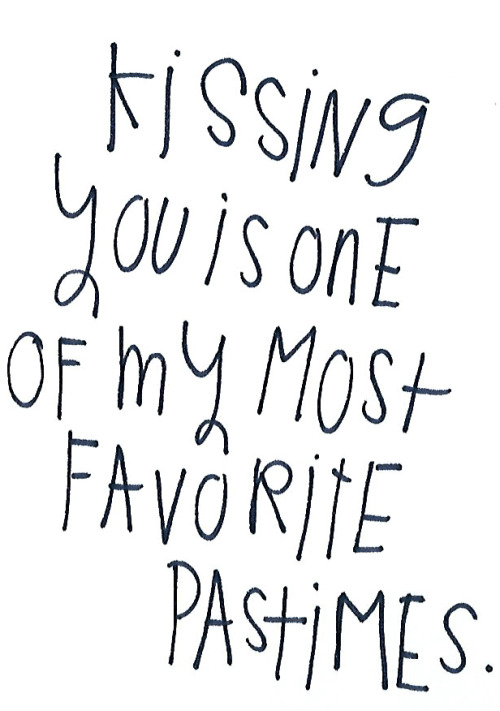 KiSSiNG
YOU iS ONE
OF MY MOSt
FAVORitE
PAStiMES.